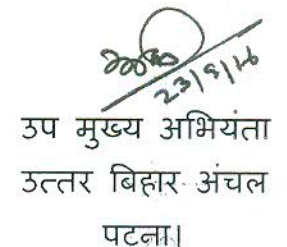 23/9/16
उप मुख्य अभियंता
उत्तर बिहार अंचल
पटना।